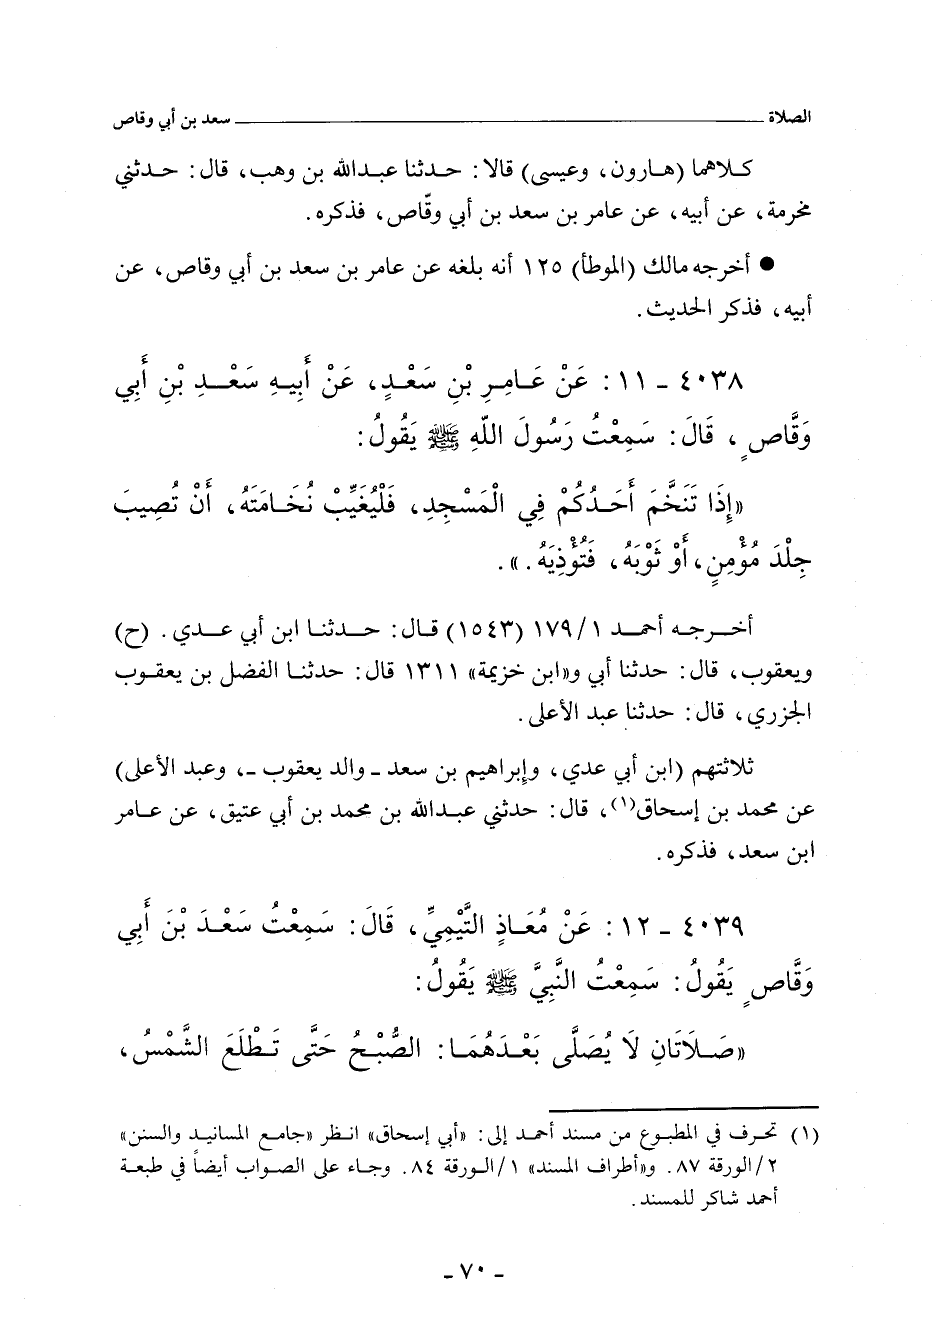 الصلاة ــــــــــــ سعد بن أبي وقاص
كلاهما (هارون، وعيسى) قالا: حدثنا عبدالله بن وهب، قال: حدثني
مخرمة، عن أبيه، عن عامر بن سعد بن أبي وقّاص، فذكره.
● أخرجه مالك (الموطأ) ١٢٥ أنه بلغه عن عامر بن سعد بن أبي وقاص، عن
أبيه، فذكر الحديث.
٤٠٣٨ ـ ١١: عَنْ عَامِرِ بْنِ سَعْدٍ، عَنْ أَبِيهِ سَعْدِ بْنِ أَبِي
وَقَّاصٍ، قَالَ: سَمِعْتُ رَسُولَ اللَّهِ ﷺ يَقُولُ:
«إِذَا تَنَخَّمَ أَحَدُكُمْ فِي الْمَسْجِدِ، فَلْيُغَيِّبْ نُخَامَتَهُ، أَنْ تُصِيبَ
جِلْدَ مُؤْمِنٍ، أَوْ ثَوْبَهُ، فَتُؤْذِيَهُ.».
أخرجه أحمد ١/١٧٩ (١٥٤٣) قال: حدثنا ابن أبي عدي. (ح)
ويعقوب، قال: حدثنا أبي و«ابن خزيمة» ١٣١١ قال: حدثنا الفضل بن يعقوب
الجزري، قال: حدثنا عبد الأعلى.
ثلاثتهم (ابن أبي عدي، وإبراهيم بن سعد ـ والد يعقوب ـ، وعبد الأعلى)
عن محمد بن إسحاق(١)، قال: حدثني عبدالله بن محمد بن أبي عتيق، عن عامر
ابن سعد، فذكره.
٤٠٣٩ ـ ١٢: عَنْ مُعَاذٍ التَّيْمِيِّ، قَالَ: سَمِعْتُ سَعْدَ بْنَ أَبِي
وَقَّاصٍ يَقُولُ: سَمِعْتُ النَّبِيَّ ﷺ يَقُولُ:
«صَلَاتَانِ لَا يُصَلَّى بَعْدَهُمَا: الصُّبْحُ حَتَّى تَطْلَعَ الشَّمْسُ،
(١) تحرف في المطبوع من مسند أحمد إلى: «أبي إسحاق» انظر «جامع المسانيد والسنن»
٢/الورقة ٨٧. و«أطراف المسند» ١/الورقة ٨٤. وجاء على الصواب أيضاً في طبعة
أحمد شاكر للمسند.
ـ ٧٠ ـ